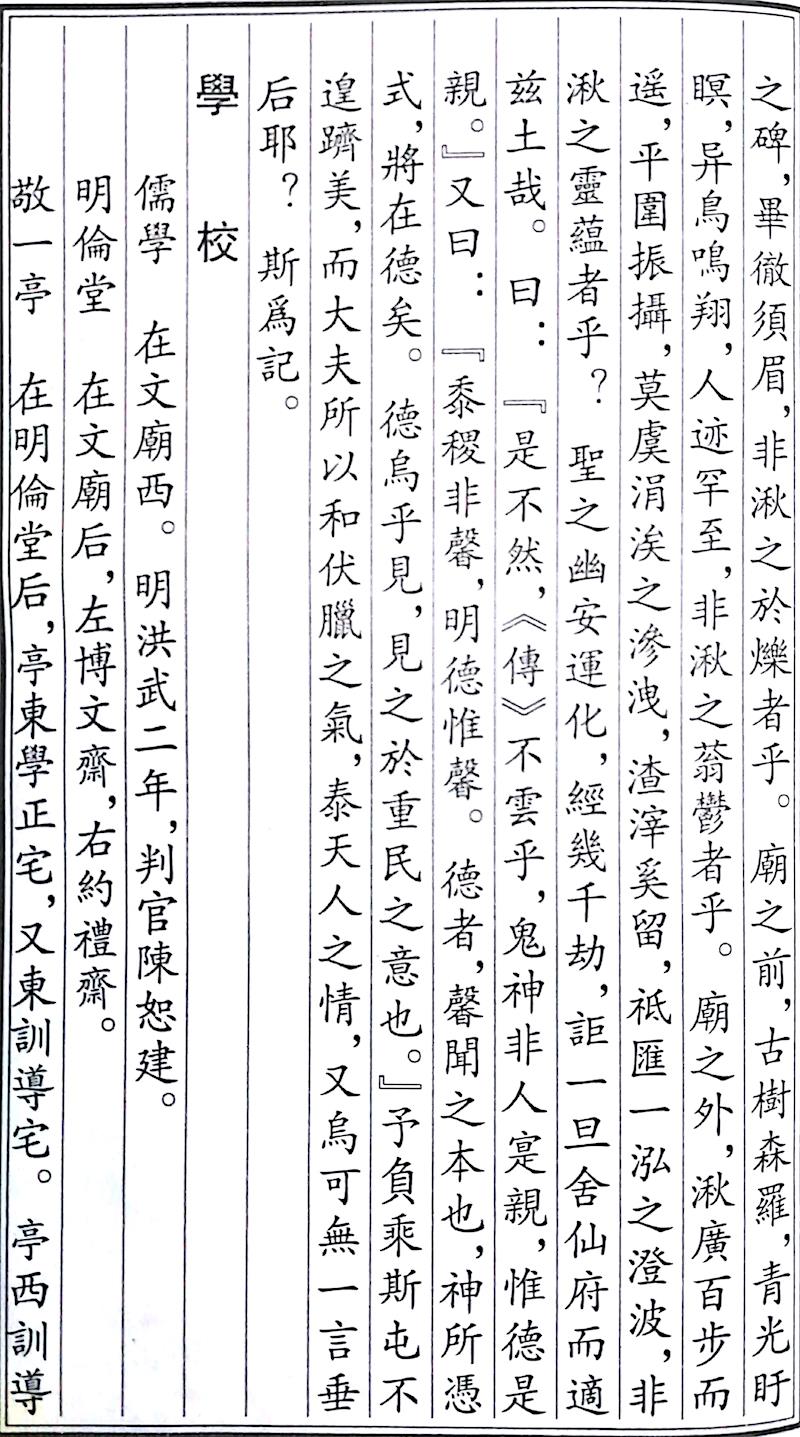 之碑，畢徹須眉，非湫之於爍者乎。廟之前，古樹森羅，青光盱
瞑，异鳥鳴翔，人迹罕至，非湫之蓊鬱者乎。廟之外，湫廣百步而
遥，平圍振攝，莫虞涓涘之滲洩，渣滓奚留，祇匯一泓之澄波，非
湫之靈蘊者乎？聖之幽安運化，經幾千劫，詎一旦舍仙府而適
兹土哉。曰：『是不然，《傳》不雲乎，鬼神非人寔親，惟德是
親。』又曰：『黍稷非馨，明德惟馨。德者，馨聞之本也，神所憑
式，將在德矣。德烏乎見，見之於重民之意也。』予負乘斯屯不
遑躋美，而大夫所以和伏臘之氣，泰天人之情，又烏可無一言垂
后耶？斯爲記。
學校
儒學　在文廟西。明洪武二年，判官陳恕建。
明倫堂　在文廟后，左博文齋，右約禮齋。
敬一亭　在明倫堂后，亭東學正宅，又東訓導宅。亭西訓導